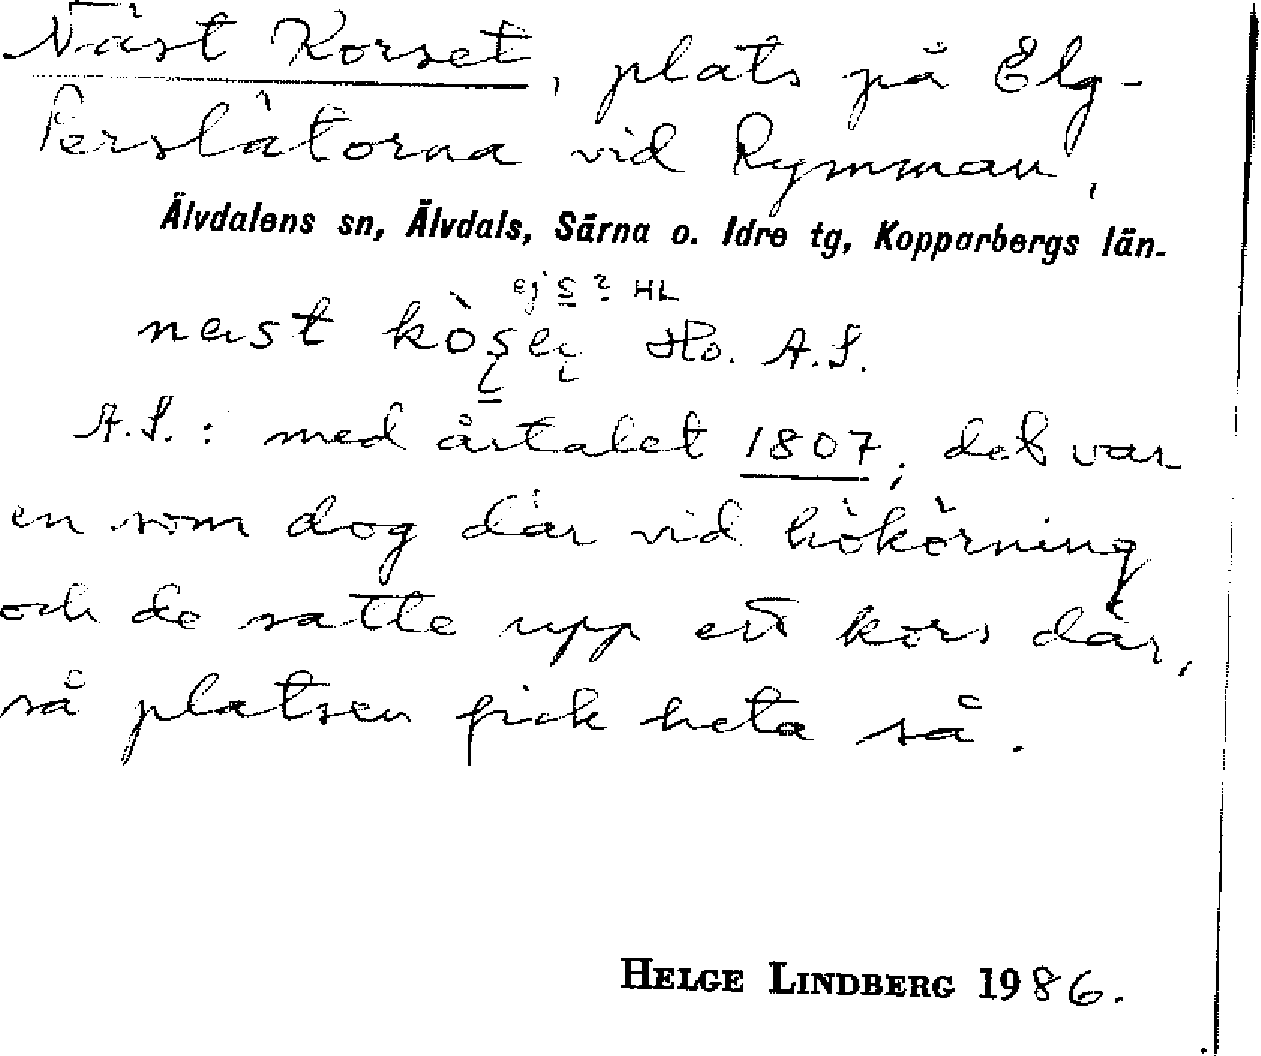 Näst Korset, plats på Elg-
Perslåtorna vid Rymman,
Älvdalens sn, Älvdals, Särna o. Idre tg, Kopparbergs län.
ej s ? HL
Ho. A.S.
A.S.: med årtalet 1807, det var
en som dog där vid hökörning
och de satte upp ett kors där,
så platsen fick heta så.
HELGE LINDBERG 1986.